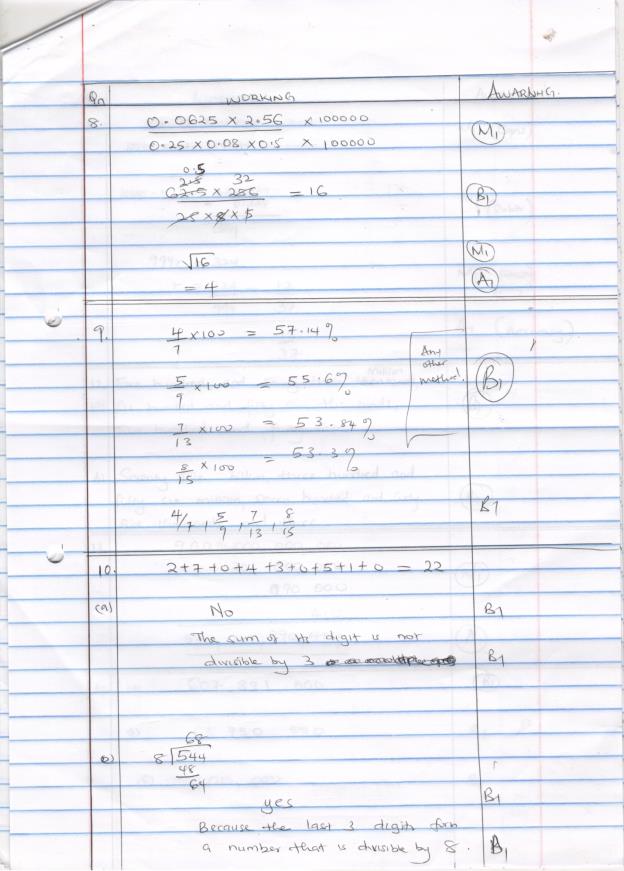 Qn WORKING AWARNG.
8. 0.0625 × 2.56 × 100000 M1
0.25 × 0.08 × 0.5 × 100000
0.5
2.5 32
62.5 × 256 = 16 B1
25 × 8 × 5
√16 M1
= 4 A1
9. 4/7 × 100 = 57.14%
Any
other
method.
5/9 × 100 = 55.6% B1
7/13 × 100 = 53.84%
8/15 × 100 = 53.3%
4/7, 5/9, 7/13, 8/15 B1
10. 2+7+0+4+3+0+5+1+0 = 22
(a) No B1
The sum of its digit is not
divisible by 3 B1
68
b) 8 544
48
64
yes B1
Because the last 3 digits form
a number that is divisible by 8. B1